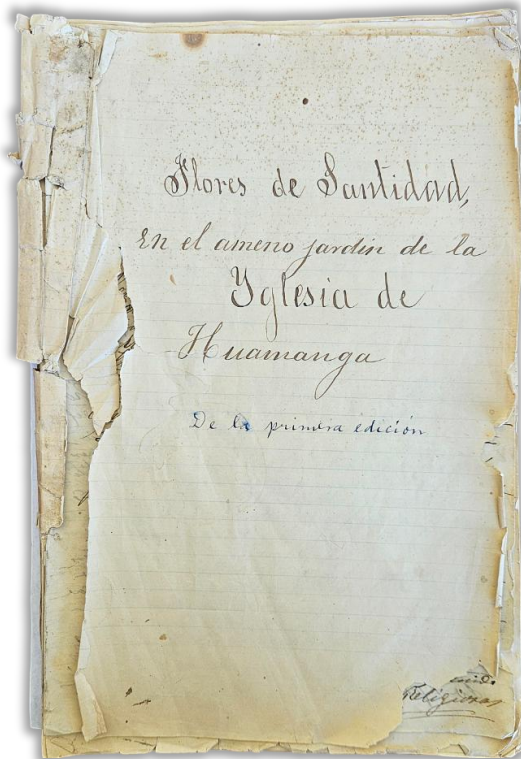 Flores de Santidad,
En el ameno jardin de la
Yglesia de
Huamanga
De la primera edición
Religiosas